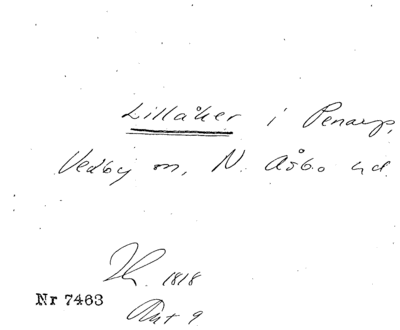 Lillåker i Penarp,
Vedby sn, N. Åsbo hd.
1818
Nr 7463
Akt 9